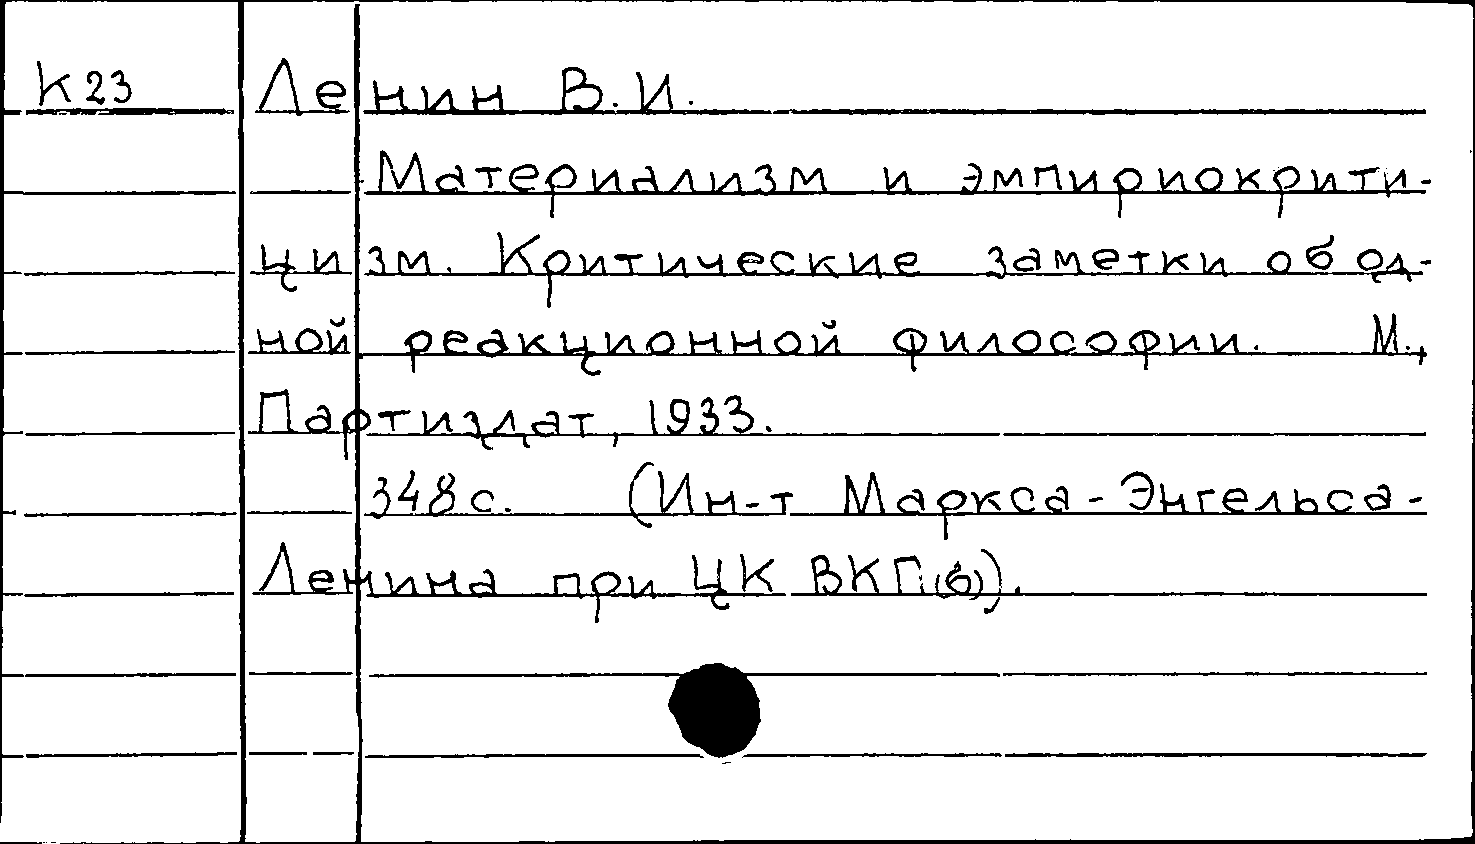 К23 Ленин В.И.
Материализм и эмпириокрити-
цизм. Критические заметки об од-
ной реакционной философии. М.,
Партиздат, 1933.
348с. (Ин-т Маркса-Энгельса-
Ленина при ЦК ВКП(б)).